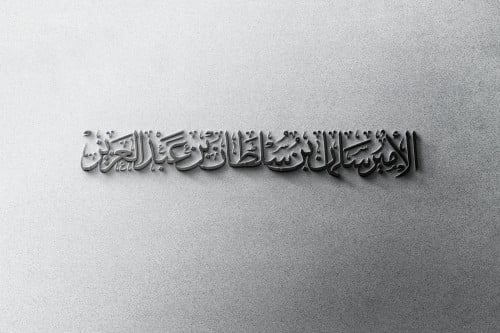 الأمير سلمان بن سلطان بن عبد العزيز